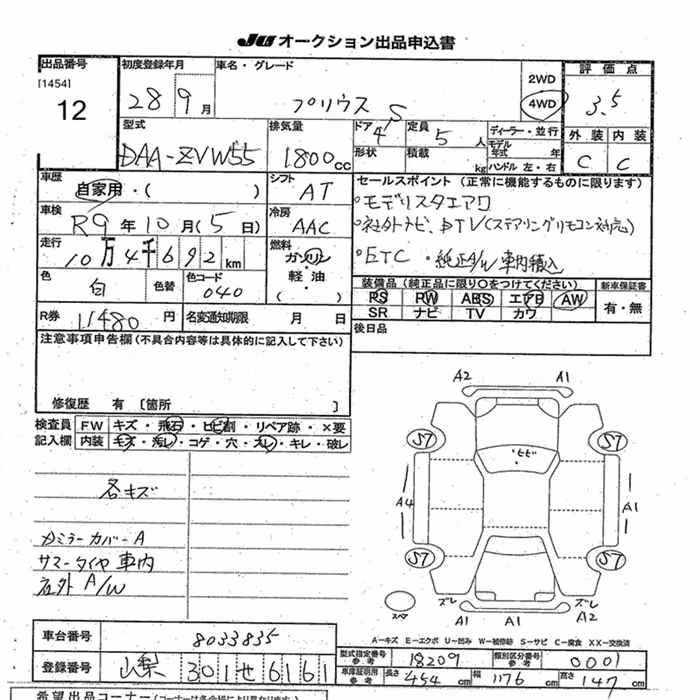 JU オークション出品申込書
出品番号
[1454]
12
初度登録年月
28年 9月
車名・グレード
プリウス S
2WD
4WD
評価点
3.5
外装 内装
C C
型式
DAA-ZVW55
排気量
1800cc
ドア
4
形状
定員
5人
積載
kg
ディーラー・並行
モデル年式 年
ハンドル 左・右
車歴
自家用・( )
シフト
AT
車検
R9年10月(5日)
冷房
AAC
走行
10万4千692km
燃料
ガソリン
軽・油
( ・ )
色
白
色替
色コード
040
R券
11480円
名変通知期限 月 日
セールスポイント(正常に機能するものに限ります)
○モデリスタエアロ
○社外ナビ、DTV(ステアリングリモコン対応)
○ETC ・純正A/W車内積込
装備品(純正品に限り○をつけてください)
PS PW ABS エアB AW
SR ナビ TV カワ
新車保証書
有・無
後日品
注意事項申告欄(不具合内容等は具体的に記入して下さい)
修復歴 有 〔箇所 〕
検査員記入欄
FW キズ・飛石・ヒビ割・リペア跡・×要
内装 キズ・汚レ・コゲ・穴・スレ・キレ・破レ
各キズ
カミラーカバーA
サマータイヤ車内
社外A/W
A2 A1
S7 S7
ヒビ
A4 A1
S7 S7
スペア
ズレ ズレ
A1 A1 A2
A-キズ E-エクボ U-凹み W-補修跡 S-サビ C-腐食 XX-交換済
車台番号
8033835
登録番号
山梨 301 せ 6161
型式指定番号
参考
18209
類別区分番号
参考
0001
車庫証明用
参考
長さ 454cm
幅 176cm
高さ 147cm
希望出品コーナー